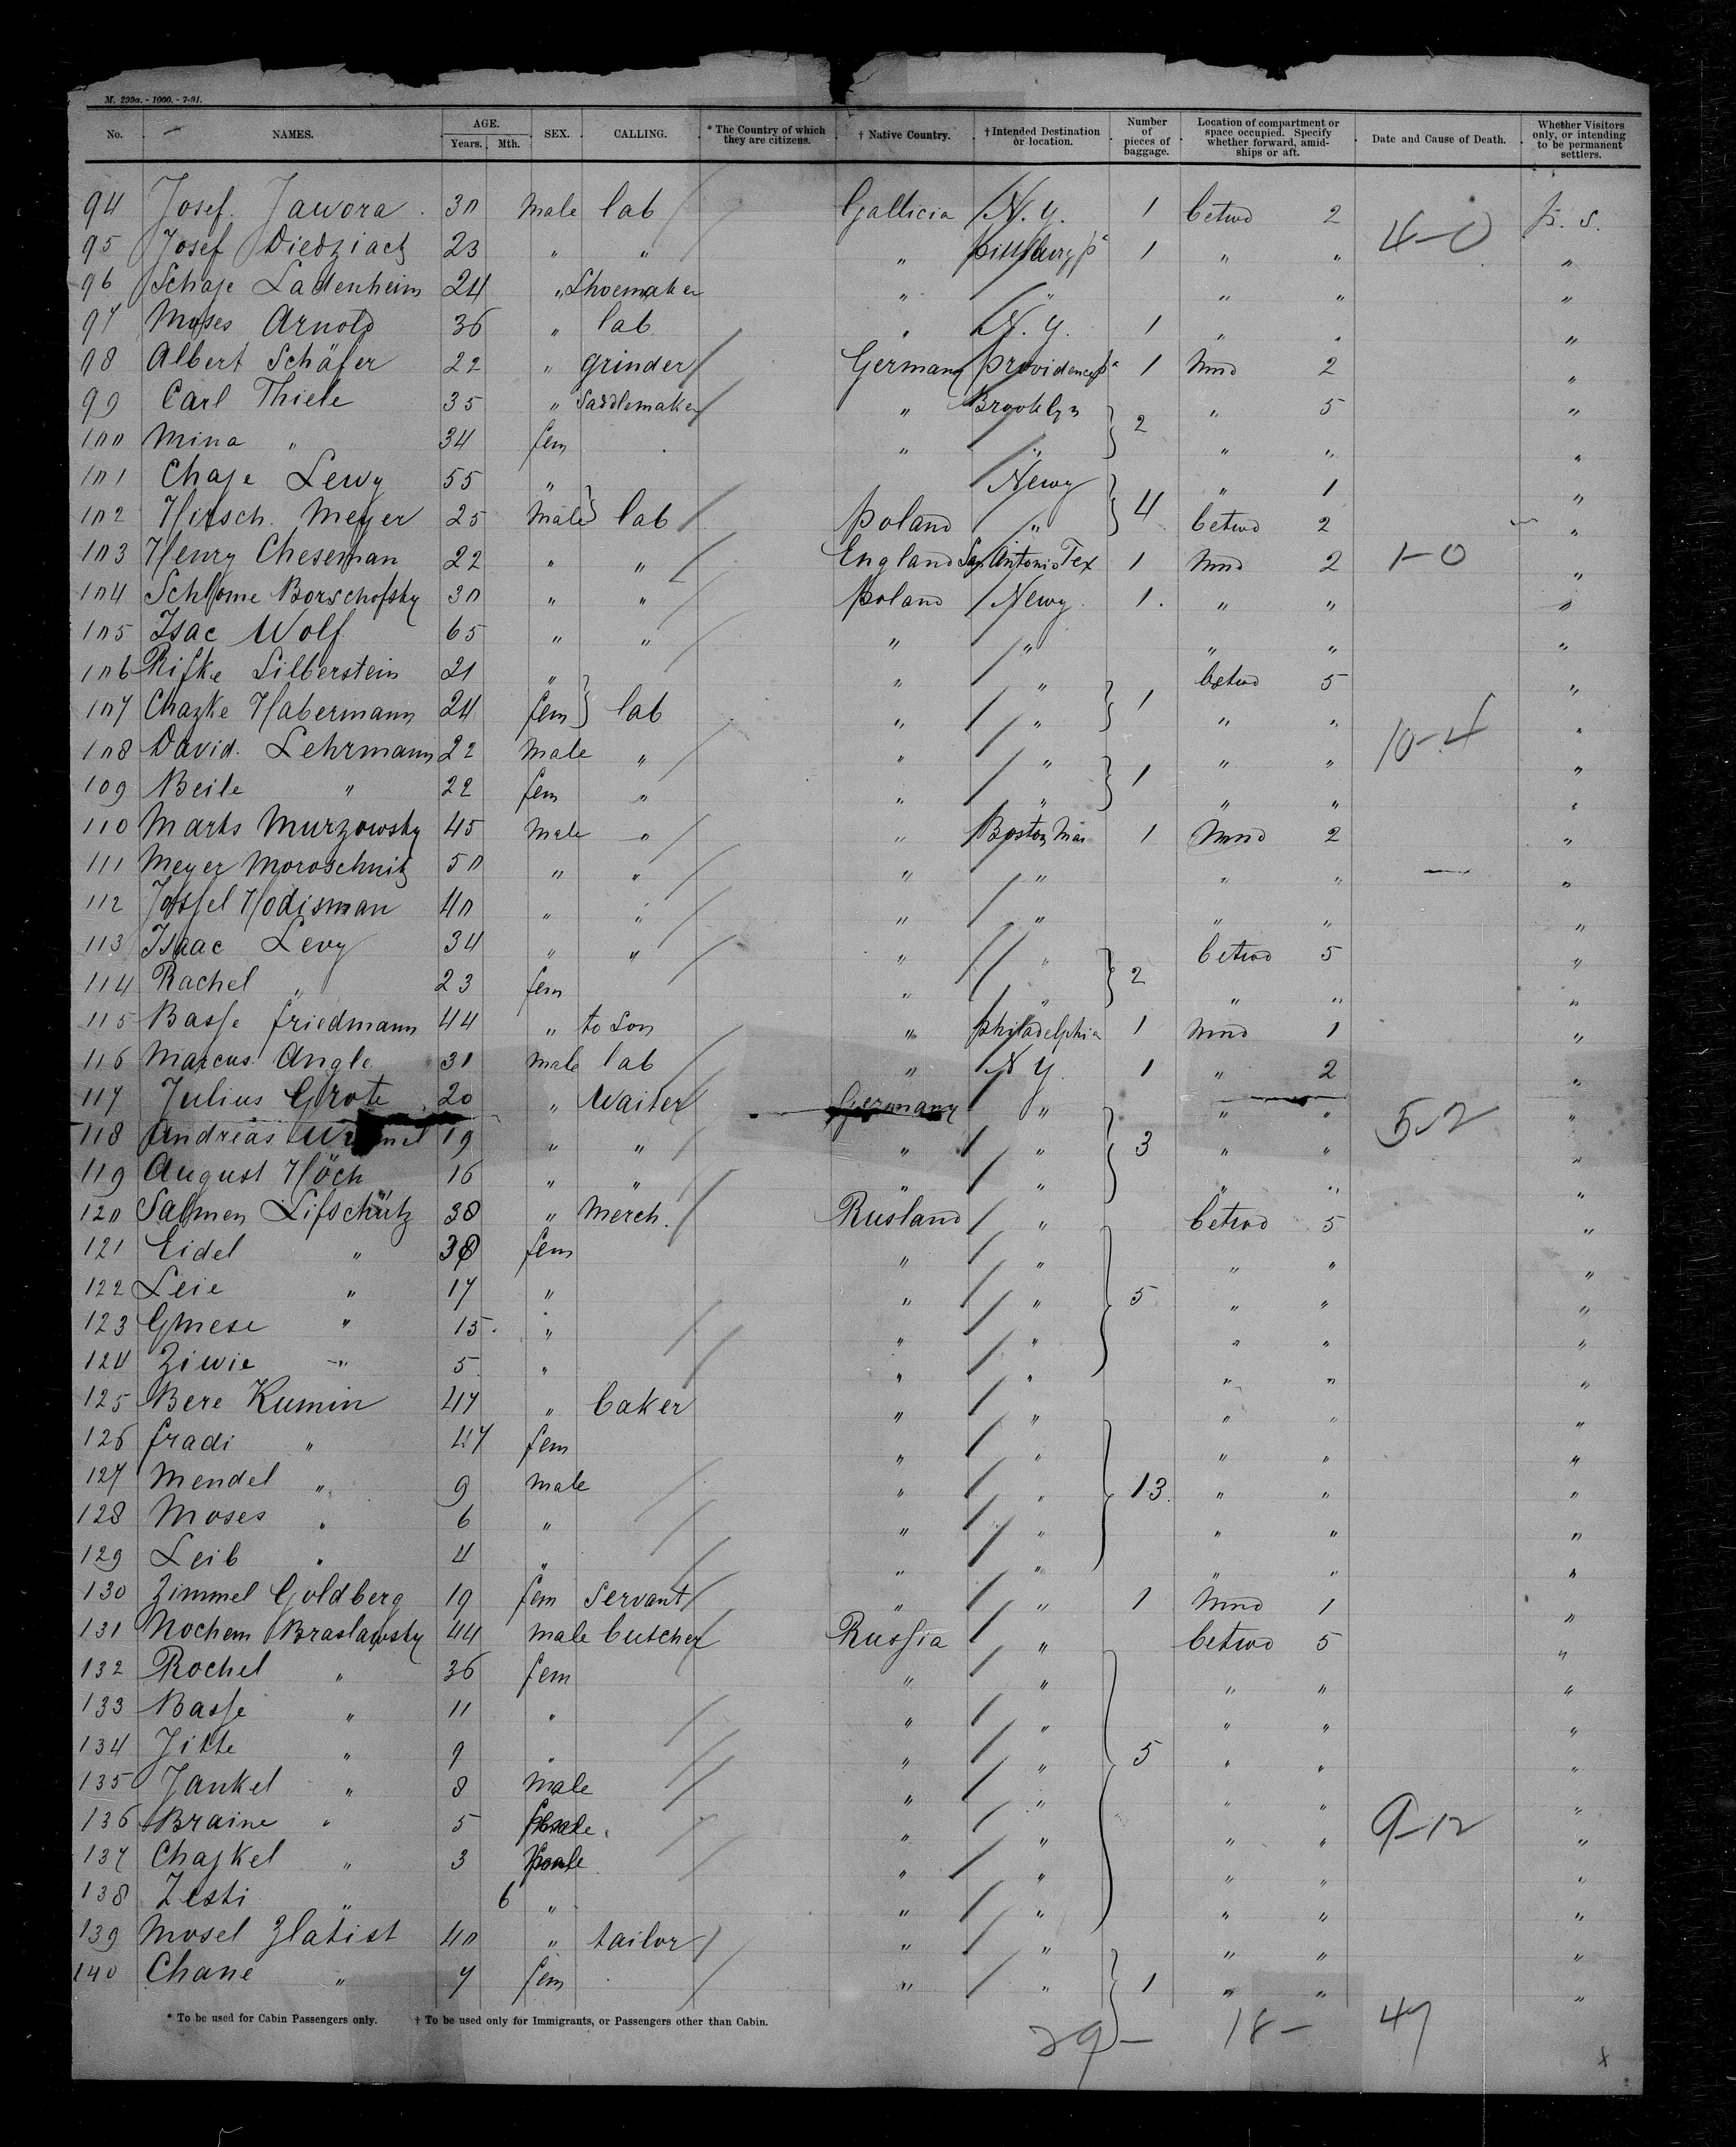 M. 239a. - 1000. - 7-91.
No. NAMES. AGE. Years. Mth. SEX. CALLING. * The Country of which they are citizens. † Native Country. † Intended Destination or location. Number of pieces of baggage. Location of compartment or space occupied. Specify whether forward, amidships or aft. Date and Cause of Death. Whether Visitors only, or intending to be permanent settlers.
94 Josef Jawora 30 male lab Gallicia N.Y. 1 betwd 2 p. s.
4-0
95 Josef Diedziach 23 " " " pittsburg pa 1 " " "
96 Schaje Ladenheim 24 " Shoemaker " " " " "
97 Moses Arnold 36 " lab " N.Y. 1 " " "
98 Albert Schäfer 22 " grinder Germany providence 1 2 "
99 Carl Thiele 35 " Saddlemaker " Brooklyn 2 " 5 "
100 Mina " 34 fem " " " " "
101 Chaje Lewy 55 " Newy 4 " 1 "
102 Hirsch Meyer 25 male lab poland " betwd 2 "
103 Henry Cheseman 22 " " England San Antonio Tex 1 2 1-0 "
104 Schlome Borschofsky 30 " " poland Newy 1 " " "
105 Isac Wolf 65 " " " " " " "
106 Rifke Silberstein 21 " " " 1 betwd 5 "
107 Chazke Habermann 24 fem lab " " " " "
10-4
108 David Lehrmann 22 male " " " 1 " " "
109 Beile " 22 fem " " " " " "
110 Marks Murzowsky 45 male " " Boston Mas 1 2 "
111 Meyer Moroschnitz 50 " " " " " " "
112 Jossel Hodisman 40 " " " " " " "
113 Isaac Levy 34 " " " " 2 betwd 5 "
114 Rachel " 23 fem " " " " "
115 Basse friedmann 44 " to son " philadelphia 1 1 "
116 Marcus Angle 31 male lab " N Y 1 " 2 "
117 Julius Grote 20 " Waiter Germany " " " "
5-2
118 Andreas 19 " " " " 3 " " "
119 August Höch 16 " " " " " " "
120 Salmen Lifschütz 38 " merch. Rusland " betwd 5 "
121 Eidel " 38 fem " " " " "
122 Leie " 17 " " " 5 " " "
123 Gmese " 15 " " " " " "
124 Ziwie " 5 " " " " " "
125 Bere Kumin 47 " baker " " " " "
126 fradi " 47 fem " " " " "
127 Mendel " 9 male " " 13 " " "
128 Moses " 6 " " " " " "
129 Leib " 4 " " " " " "
130 Zimmel Goldberg 19 fem servant " " 1 1 "
131 Nochem Braslawsky 44 male butcher Russia " betwd 5 "
132 Rochel " 36 fem " " " " "
133 Basse " 11 " " " " " "
134 Jitte " 9 " " " 5 " " "
135 Jankel " 8 male " " " " "
136 Braine " 5 " " " " 9-12 "
137 Chajkel " 3 " " " " "
138 Zesti " 6 " " " " " "
139 Mosel Zlatist 40 " tailor " " " " "
140 Chane " 7 fem " " 1 " " "
* To be used for Cabin Passengers only. † To be used only for Immigrants, or Passengers other than Cabin.
29 - 18 - 47